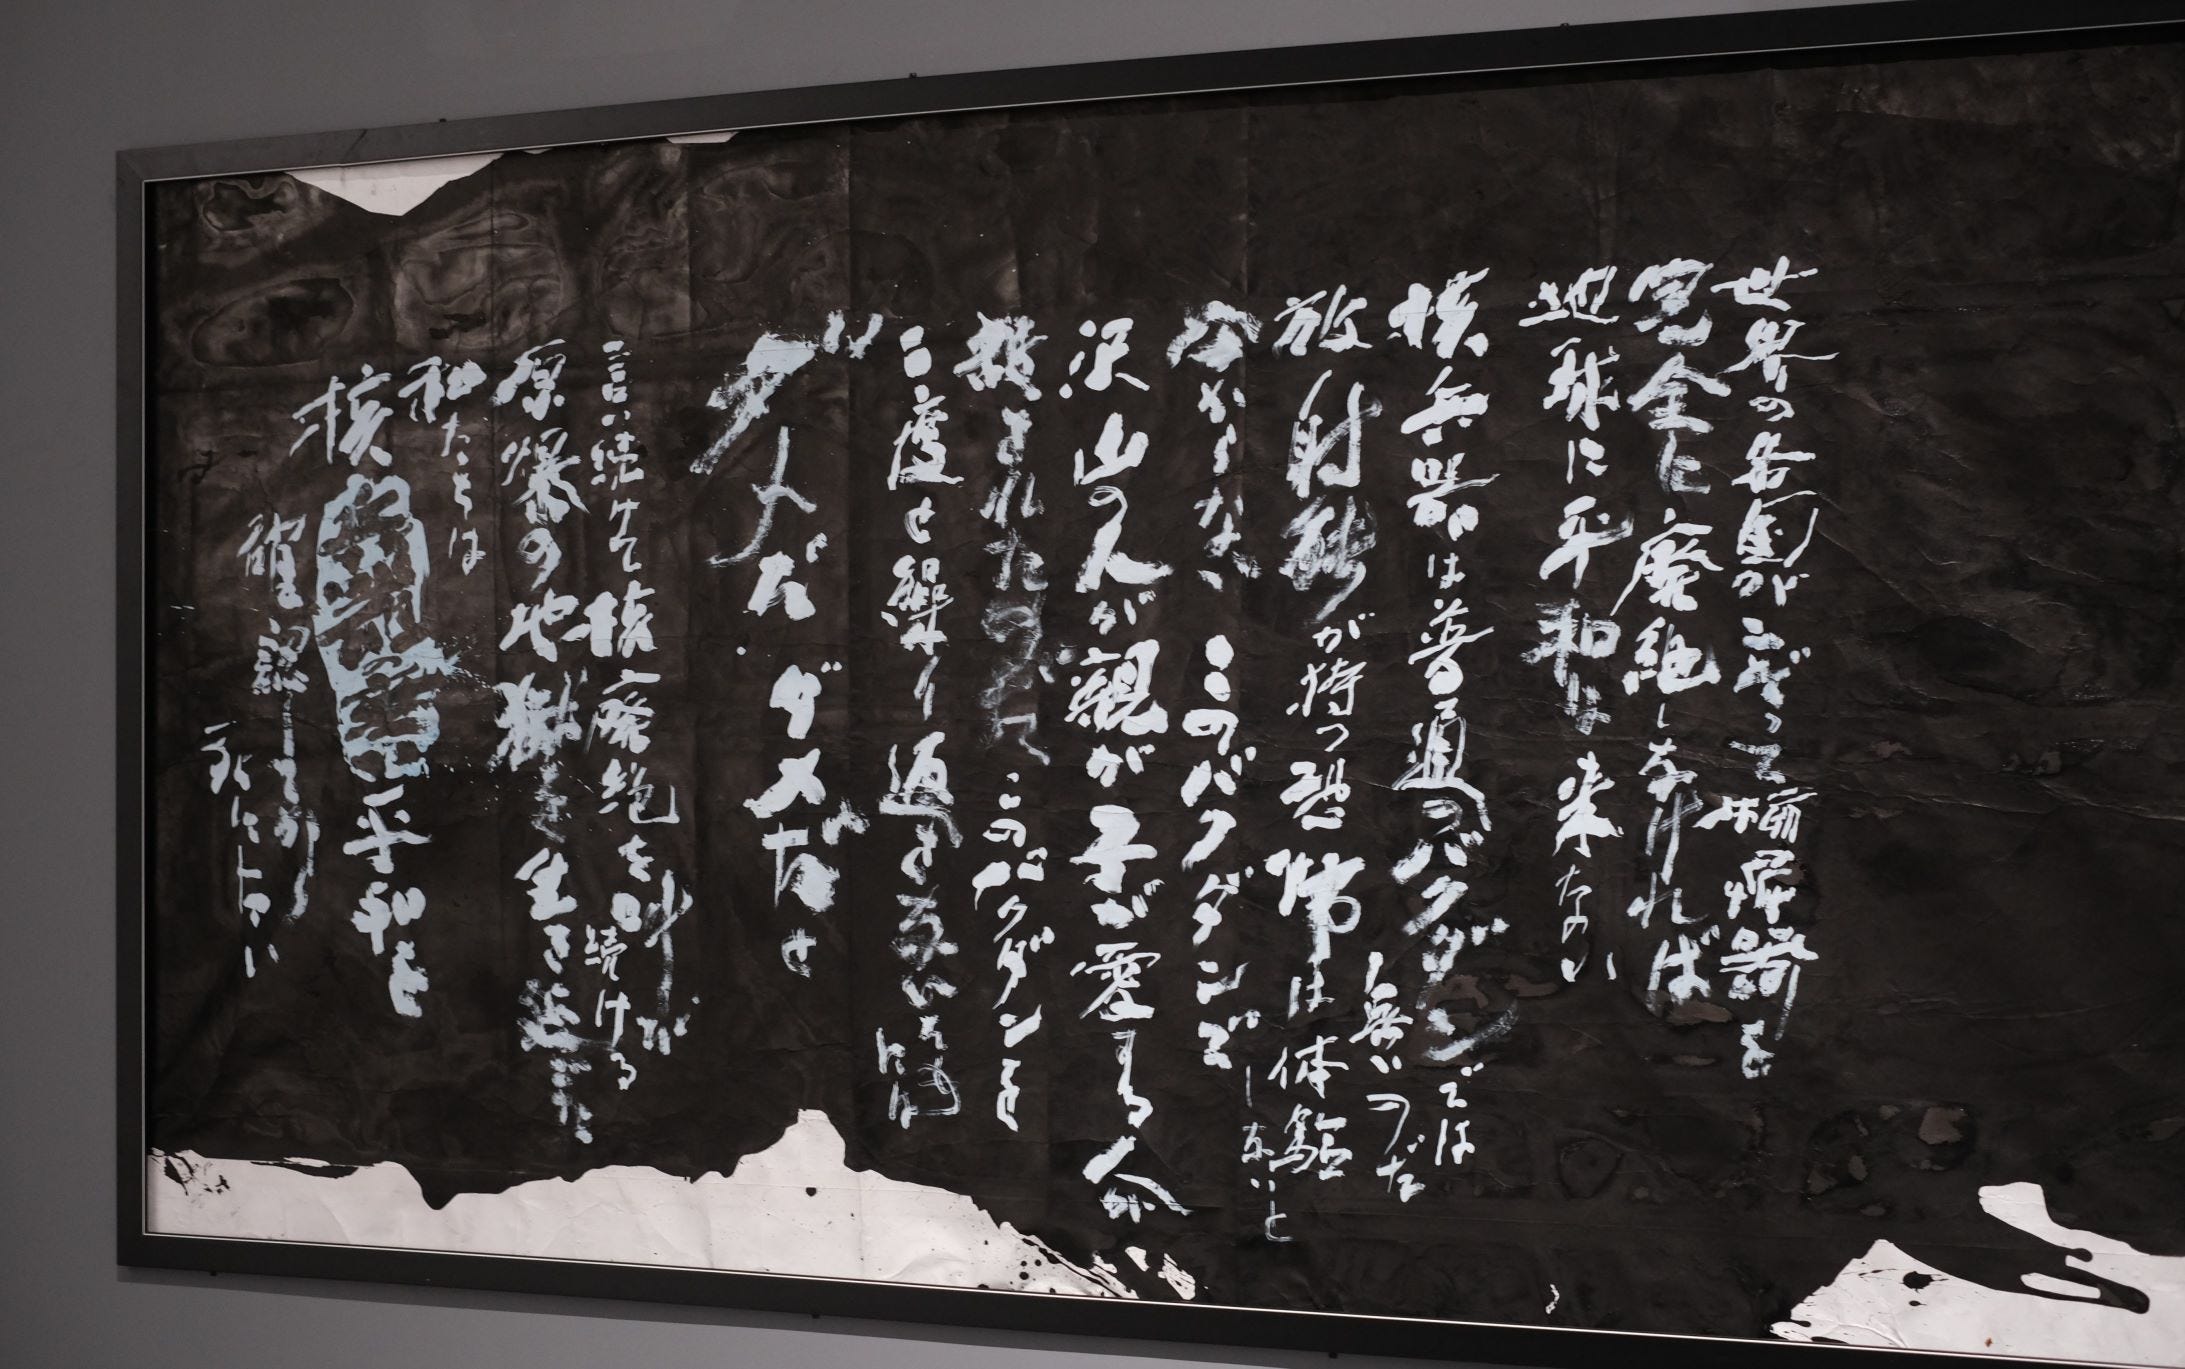 世界の各国がこぞって核廃絶を
完全に廃絶しなければ
地球に平和は来ない
核兵器は普通のバクダンでは
無いのだ
放射能が持つ恐怖は体験
しないと
分からない このバクダンで
沢山の人が親が子が愛する人が
殺されたのだ このバクダンを
二度と繰り返さないために
ダメだ ダメだと
叫び
言い続けて核廃絶を 続ける
原爆の地獄を生き延びた
私たちは
核 平和を
確認してから
死にたい